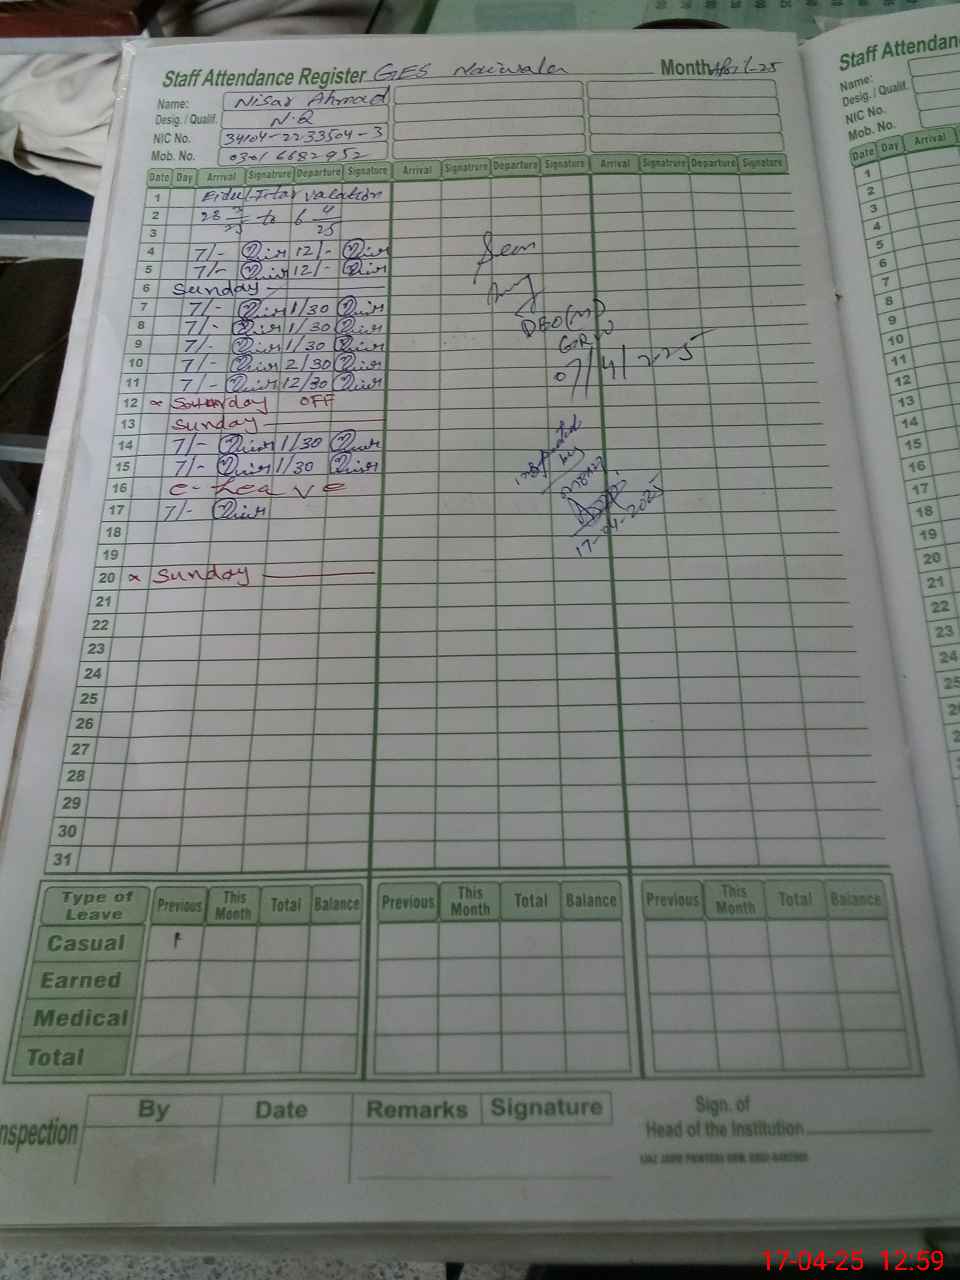 Staff Attendance Register GES Naiwala Month April-25
Name: Nisar Ahmad
Desig. / Qualif. N.Q
NIC No. 34104-2233504-3
Mob. No. 0301 6682952
Date Day Arrival Signature Departure Signature Arrival Signatrure Departure Signature Arrival Signatrure Departure Signature
1 Eidul-Fitar vacation
2 28 3/25 to 6 4/25
3
4 7/- Nisar 12/- Nisar
5 7/- Nisar 12/- Nisar
6 Sunday
7 7/- Nisar 1/30 Nisar
8 7/- Nisar 1/30 Nisar
9 7/- Nisar 1/30 Nisar
10 7/- Nisar 2/30 Nisar
11 7/- Nisar 12/30 Nisar
12 Saturday OFF
13 Sunday
14 7/- Nisar 1/30 Nisar
15 7/- Nisar 1/30 Nisar
16 C-Leave
17 7/- Nisar
18
19
20 Sunday
21
22
23
24
25
26
27
28
29
30
31
Seen
DEO(M)
GRW
07/4/2025
by
17-04-2025
Type of Leave Previous This Month Total Balance Previous This Month Total Balance Previous This Month Total Balance
Casual 1
Earned
Medical
Total
nspection By Date Remarks Signature
Sign. of
Head of the Institution
Staff Attendan
Name:
Desig. / Qualif.
NIC No.
Mob. No.
Date Day Arrival
1
2
3
4
5
6
7
8
9
10
11
12
13
14
15
16
17
18
19
20
21
22
23
24
25
17-04-25 12:59